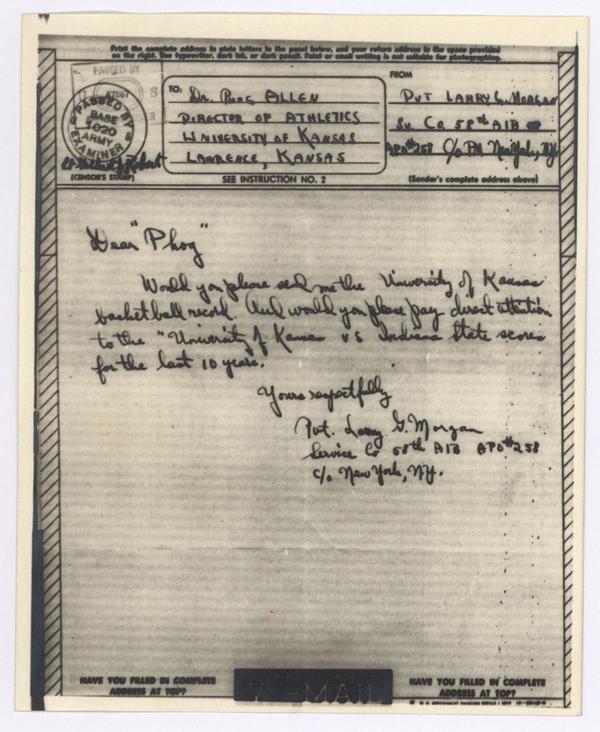 Print the complete address in plain letters in the panel below, and your return address in the space provided
on the right. Use typewriter, dark ink, or dark pencil. Faint or small writing is not suitable for photographing.
PASSED BY
PASSED BY
BASE
1020
ARMY
EXAMINER
(CENSOR'S STAMP)
TO:
DR. PHOG ALLEN
DIRECTOR OF ATHLETICS
UNIVERSITY OF KANSAS
LAWRENCE, KANSAS
SEE INSTRUCTION NO. 2
FROM
PVT LARRY G. MORGAN
SV. CO. 58th AIB
APO #258 C/O PM New York, NY.
(Sender's complete address above)
Dear "Phog"
Would you please send me the University of Kansas
basketball record. And would you please pay direct attention
to the "University of Kansas vs Indiana State scores
for the last 10 years.
Yours respectfully
Pvt. Larry G. Morgan
Service Co 58th AIB APO #258
c/o New York, NY.
HAVE YOU FILLED IN COMPLETE
ADDRESS AT TOP?
V-MAIL
HAVE YOU FILLED IN COMPLETE
ADDRESS AT TOP?